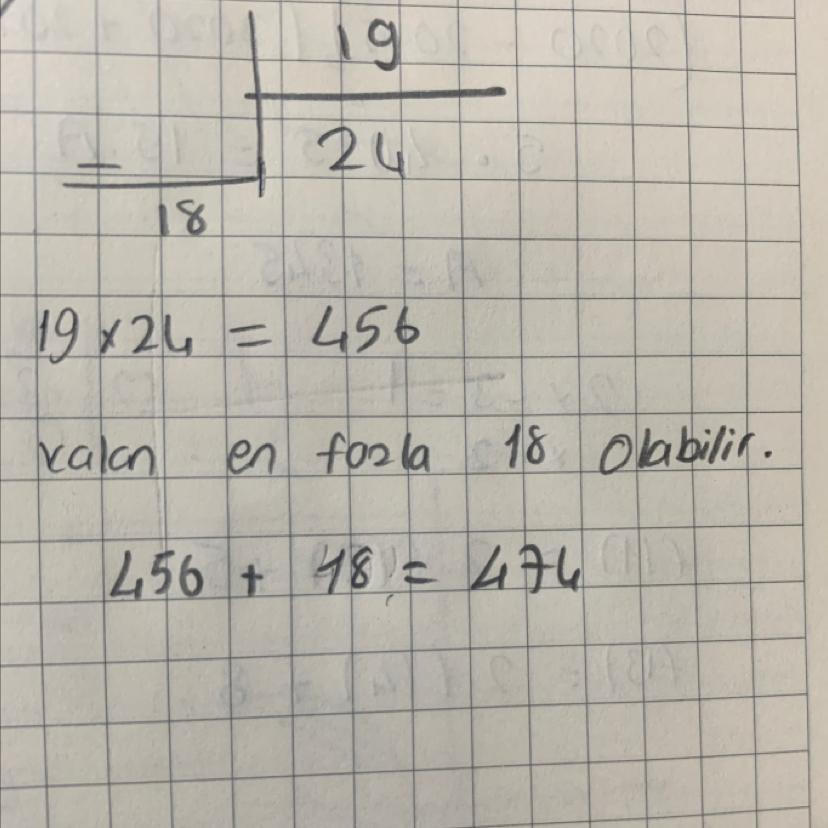 19
24
18
19 x 24 = 456
kalan en fazla 18 olabilir.
456 + 18 = 474